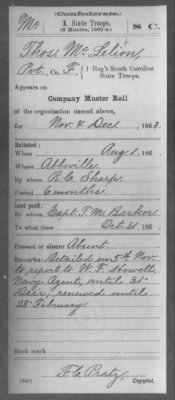 (Confederate.)
Mc 1 State Troops. S C.
(6 Months, 1863-4.)
Thos. McLelion,
Pvt., Co. F, 1 Reg't South Carolina
State Troops.
Appears on
Company Muster Roll
of the organization named above,
for Nov & Dec, 1863.
Enlisted:
When Aug 1, 186 .
Where Abbeville
By whom R. C. Sharp
Period 6 months.
Last paid:
By whom Capt. T. M. Barker
To what time Oct. 31, 186 .
Present or absent Absent.
Remarks: Detailed on 5th Nov
to report to W. F. Howell,
Navy Agent, until 31st
Decr; renewed until
28 February.
Book mark:
F. C. Pratz,
(642) Copyist.